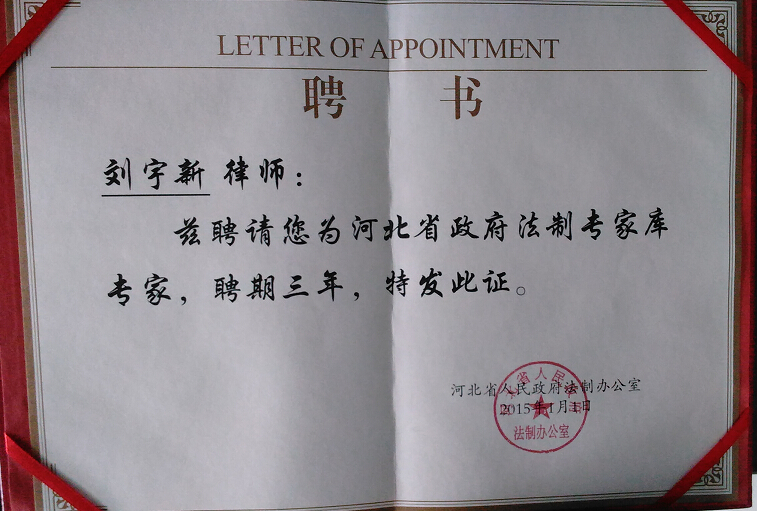 LETTER OF APPOINTMENT
聘 书
刘宇新 律师：
兹聘请您为河北省政府法制专家库
专家，聘期三年，特发此证。
河北省人民政府法制办公室
2015年1月1日
法制办公室